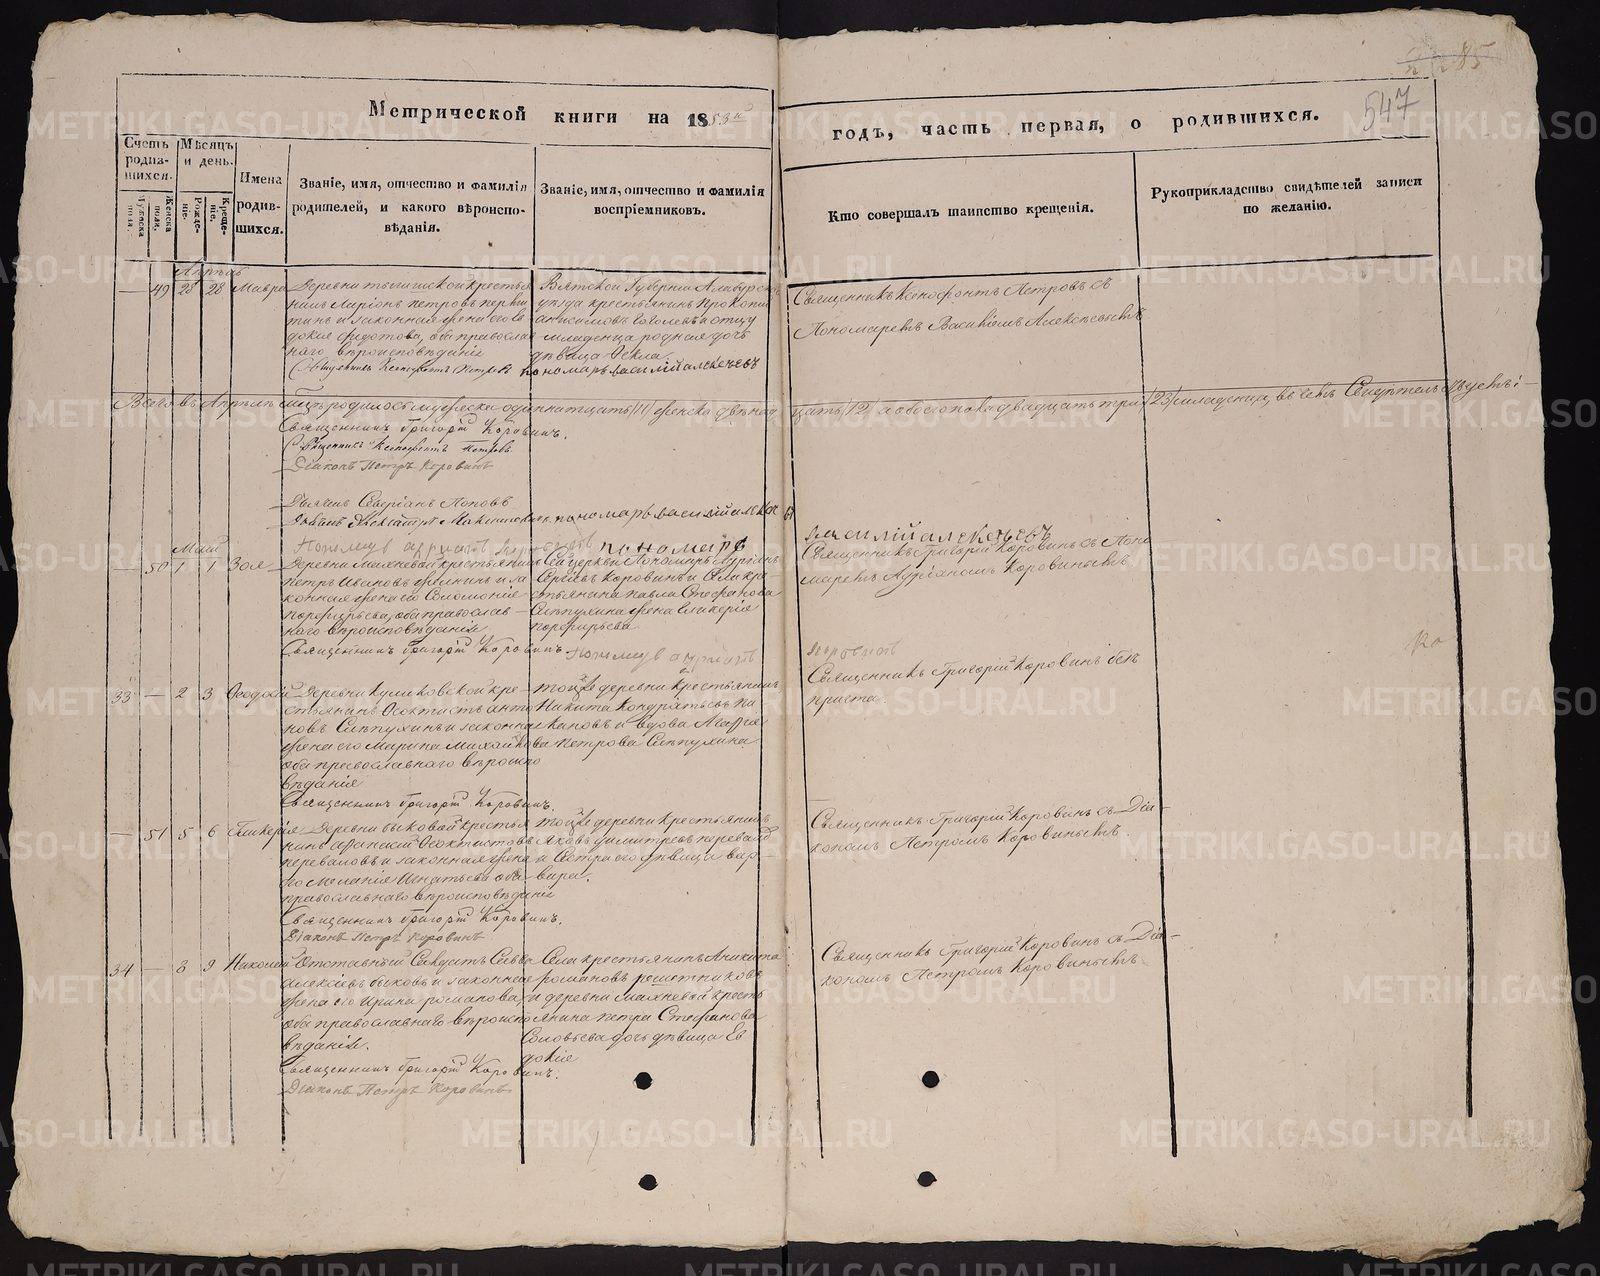 85
547
Метрической книги на 1853й
годъ, часть первая, о родившихся.
Счетъ родившихся.
Мужеска пола.
Женска пола.
Мѣсяцъ и день.
Рожденіе.
Крещеніе.
Имена родившихся.
Званіе, имя, отчество и фамилія родителей, и какого вѣроисповѣданія.
Званіе, имя, отчество и фамилія воспріемниковъ.
Кто совершалъ таинство крещенія.
Рукоприкладство свидѣтелей записи по желанію.
Апрѣль
— 49 28 28 Мавра
Деревни крестья
нинъ Ларіонъ Петровъ
и законная жена его Ев
докія Федотова, оба православ
наго вѣроисповѣданія
Священникъ Ксенофонтъ Петровъ
Вятской Губерніи
уѣзда крестьянинъ Прокопій
Анисимовъ и отцу
младенца родная дочь
дѣвица Фекла
пономарь василій алексѣевъ
Священникъ Ксенофонтъ Петровъ съ
Пономаремъ Василіемъ Алексѣевымъ
Всего въ Апрѣлѣ м-цѣ родилось мужеска одиннатцать /11/ женска двѣнад
цать /12/ а обоего пола двадцать три /23/ младенца, въ чемъ Свидѣтельствуемъ:
Священникъ Григорій Коровинъ.
Священникъ Ксенофонтъ Петровъ
Діаконъ Петръ Коровинъ
Дьячекъ Северіанъ Поповъ
пономарь василій алексѣ
евъ
Май
— 50 1 1 Зоя
Деревни Махневой крестьянинъ
Петръ Ивановъ и за
конная жена его Соломонія
Порфирьева, оба православ
наго вѣроисповѣданія
Священникъ Григорій Коровинъ
Сей церкви Пономарь Адріанъ
Сергѣевъ Коровинъ и
стьянина Павла Стефанова
Слѣпухина жена Гликерія
Порфирьева
Священникъ Григорій Коровинъ съ Поно
маремъ Адріаномъ Коровинымъ
33 — 2 3 Феодосій
Деревни Куликовской кре
стьянинъ Феоктистъ Анто
новъ Слѣпухинъ и законная
жена его Марина Михайлова
оба православнаго вѣроиспо
вѣданія
Священникъ Григорій Коровинъ.
Той же деревни крестьянинъ
Никита Кондратьевъ Па
кановъ и вдова
Петрова Слѣпухина
Священникъ Григорій Коровинъ безъ
причта.
— 51 5 6 Гликерія
Деревни Быковой крестья
нинъ Афанасій Феоктистовъ
Переваловъ и законная жена
его Меланія Игнатьева оба
православнаго вѣроисповѣданія
Священникъ Григорій Коровинъ.
Діаконъ Петръ Коровинъ
Той же деревни крестьянинъ
Яковъ Димитріевъ Перевалов
и Сестра его дѣвица Вар
вара.
Священникъ Григорій Коровинъ съ Діа
кономъ Петромъ Коровинымъ.
34 — 8 9 Николай
Отставный Солдатъ Савва
Алексѣевъ Быковъ и законная
жена его Ирина Романова,
оба православнаго вѣроиспо
вѣданія.
Священникъ Григорій Коровинъ.
Діаконъ Петръ Коровинъ
Села крестьянинъ Аникита
Романовъ Решетниковъ
и деревни Махневой кресть
янина Петра Стефанова
Соловьева дочь дѣвица Ев
докія
Священникъ Григорій Коровинъ съ Діа
кономъ Петромъ Коровинымъ.
METRIKI.GASO-URAL.RU